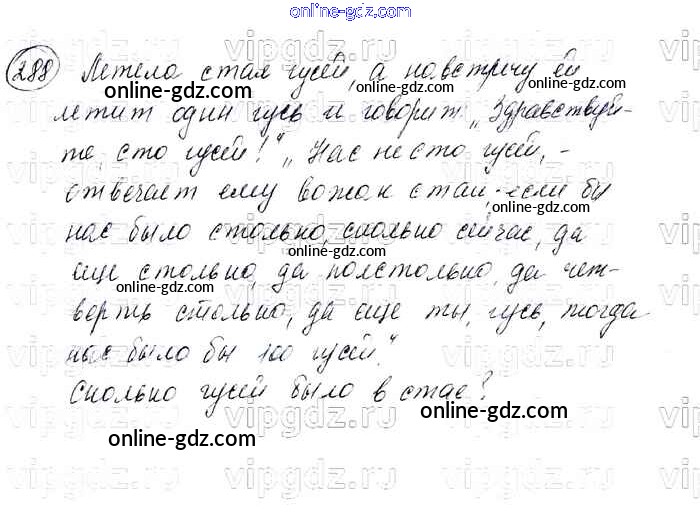 online-gdz.com
288 Летела стая гусей, а навстречу ей
летит один гусь и говорит „Здравствуй-
те, сто гусей!" „Нас не сто гусей, -
отвечает ему вожак стаи,-если бы
нас было столько, сколько сейчас, да
еще столько, да полстолько, да чет-
верть столько, да еще ты, гусь, тогда
нас было бы 100 гусей."
Сколько гусей было в стае?
vipgdz.ru
online-gdz.com
online-gdz.com
online-gdz.com
online-gdz.com
online-gdz.com
online-gdz.com
online-gdz.com